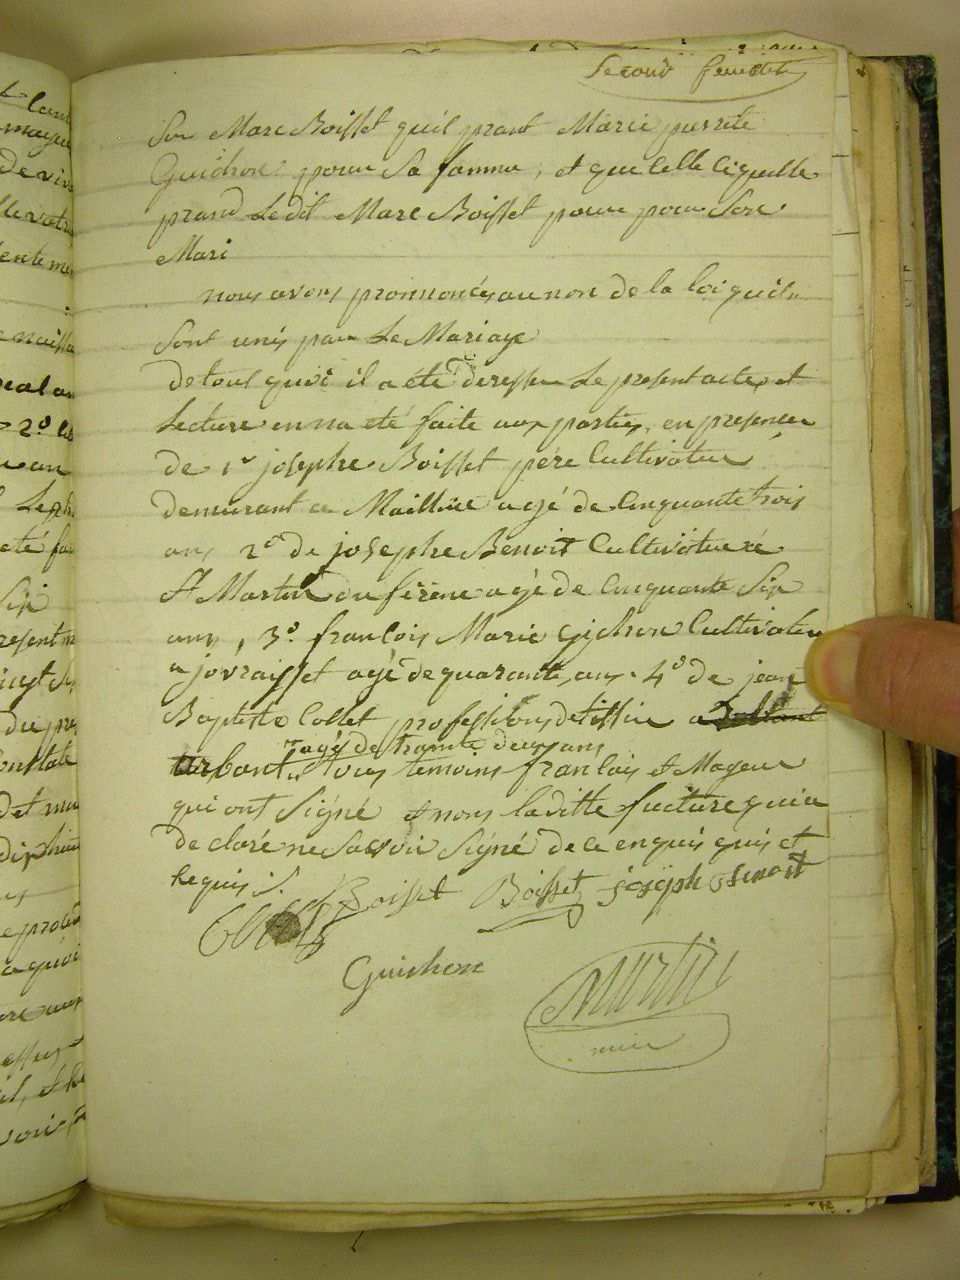 Second feuillet
Sr Marc Boisset quil prant Marie perrete
Guichon pour Sa famme, et que Celle Ciquelle
prand Ledit Marc Boisset pour pour Son
Mari
nous avons prononcés au non de la loi quils
Sont unis par Le Mariage
de tout quoi il a été deresser Le present acte et
Lecture en na eté faite aux parties, en presence
de 1r josephe Boisset pére Cultivateur
demurant a Maillia agé de Cinquante trois
ans 2o de josephe Benoit Cultivateur a
St Martin du frêne agé de Cinquante Six
ans, 3o. francois Marie Gichon Cultivateur
a jovraisset agé de quarante ans. 4o de jean
Baptiste Collet profession de tissier a
agé de trante deux ans
tous temoins francois et Mageur
qui ont Signé et nous laditte future qui a
de claré ne Savoir Signé de ce enquis quis et
Requis S.
Boisset Boisset joseph Benoit
Guichon
Martin
mair